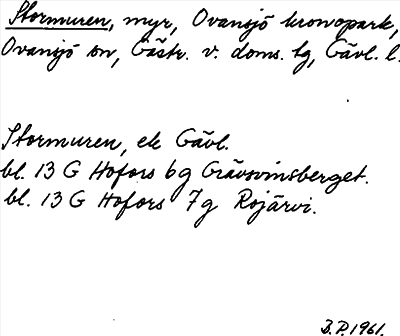 Stormuren, myr, Ovansjö kronopark,
Ovansjö sn, Gästr. v. doms. tg, Gävl. l.
Stormuren, ek Gävl.
bl. 13 G Hofors 6g Grävsvinsberget.
bl. 13 G Hofors 7g Rojärvi.
B.P. 1961.